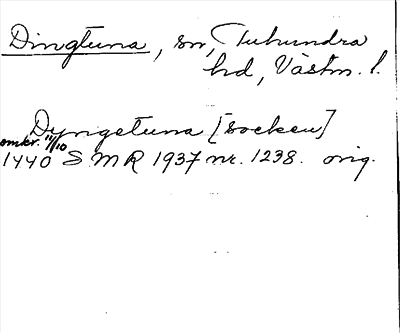 Dingtuna, sn, Tuhundra
hd, Västm. l.
Dyngetuna [socken]
omkr. 11/10
1440 S M R 1937 nr. 1238. orig.